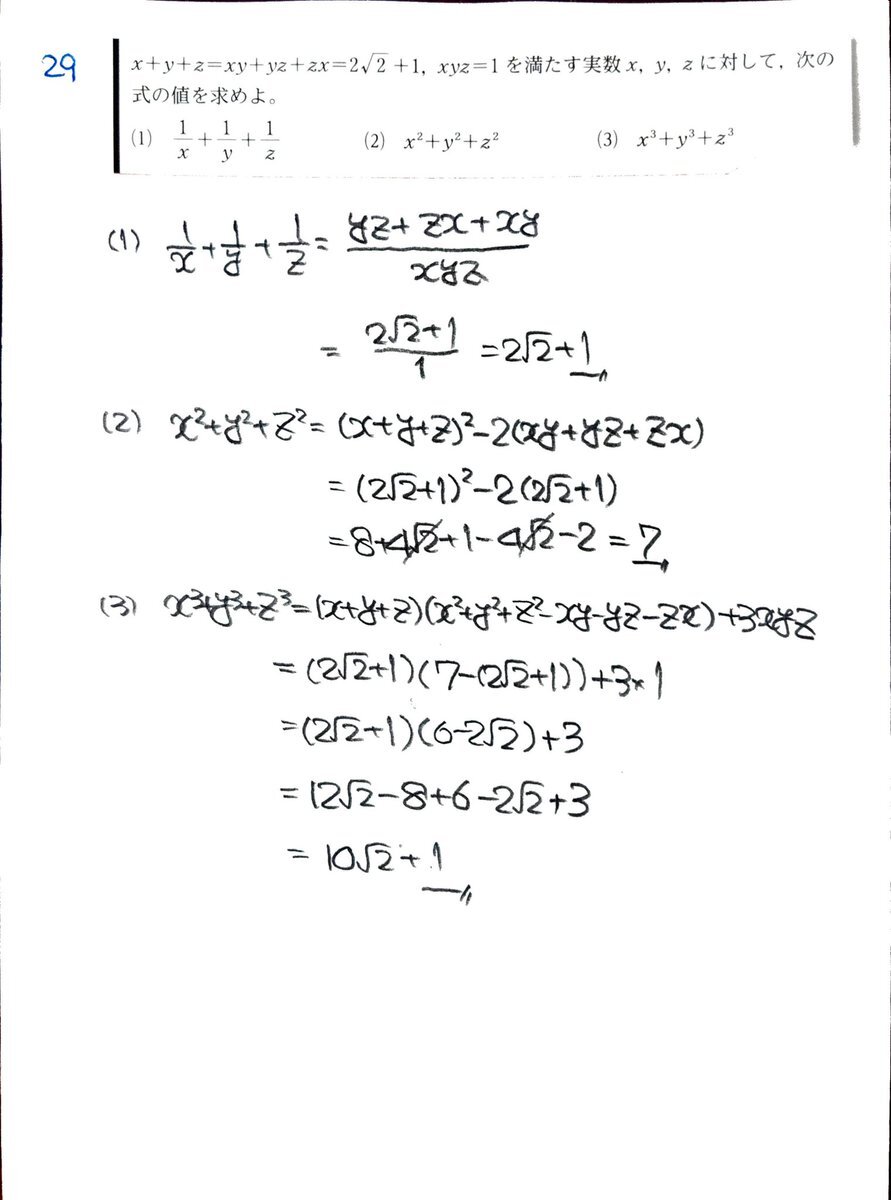 29
x+y+z=xy+yz+zx=2√2+1, xyz=1を満たす実数x, y, zに対して，次の
式の値を求めよ。
(1) 1/x+1/y+1/z (2) x²+y²+z² (3) x³+y³+z³
(1) 1/x+1/y+1/z=(yz+zx+xy)/xyz
=(2√2+1)/1=2√2+1
(2) x²+y²+z²=(x+y+z)²-2(xy+yz+zx)
=(2√2+1)²-2(2√2+1)
=8+4√2+1-4√2-2=7
(3) x³+y³+z³=(x+y+z)(x²+y²+z²-xy-yz-zx)+3xyz
=(2√2+1)(7-(2√2+1))+3×1
=(2√2+1)(6-2√2)+3
=12√2-8+6-2√2+3
=10√2+1